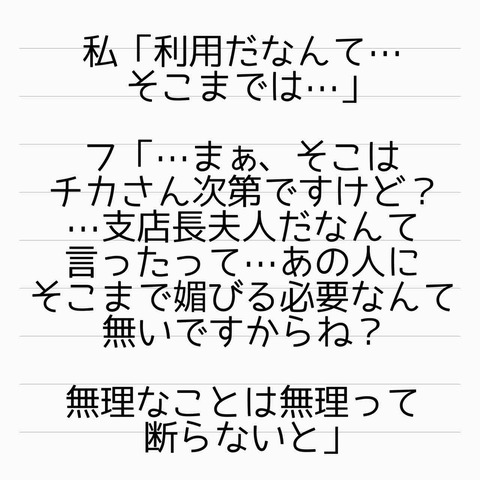 私「利用だなんて…
そこまでは…」
フ「…まぁ、そこは
チカさん次第ですけど？
…支店長夫人だなんて
言ったって…あの人に
そこまで媚びる必要なんて
無いですからね？
無理なことは無理って
断らないと」